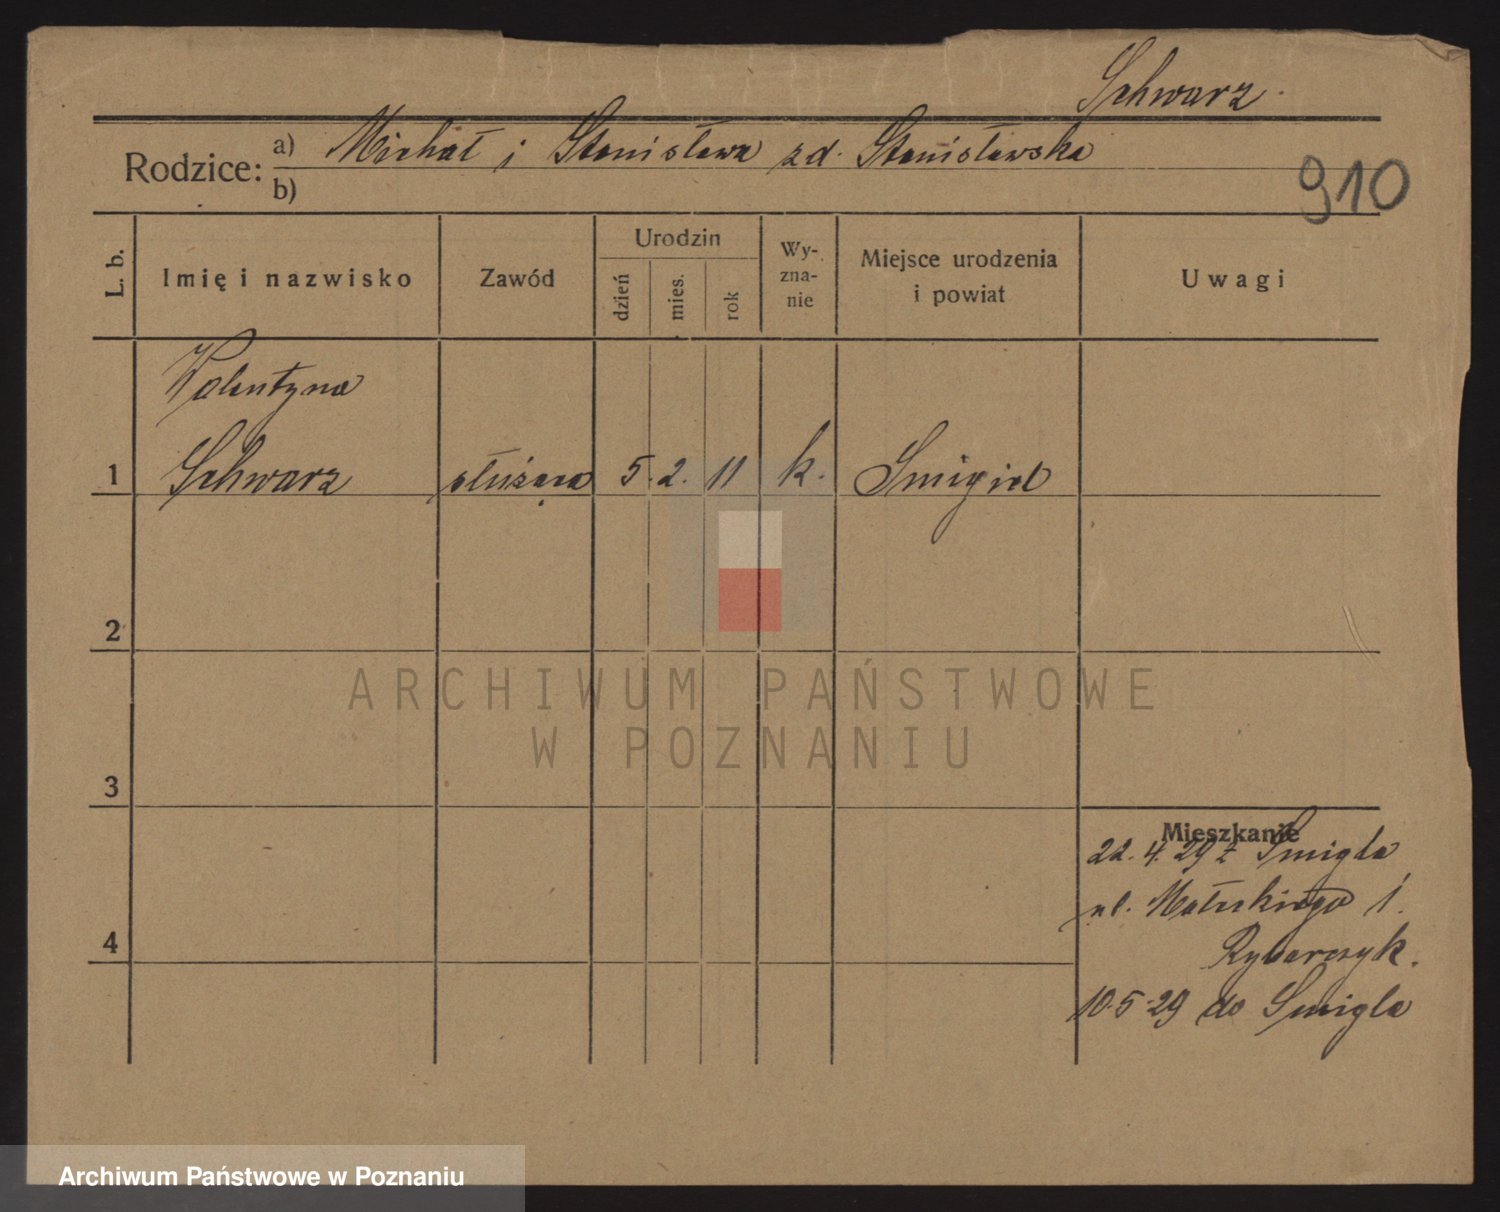 Schwarz.
Rodzice: a) Michał i Stanisława z d. Stanisławska
b)
910
L. b.
Imię i nazwisko
Zawód
Urodzin
dzień
mies.
rok
Wy-
zna-
nie
Miejsce urodzenia
i powiat
Uwagi
Walentyna
1 Schwarz służąca 5. 2. 11 k. Smigiel
2
3
4
Mieszkanie
22. 4. 29 z Smigla
ul. 1.
Rybarczyk.
10.5.29 do Smigla
ARCHIWUM PAŃSTWOWE
W POZNANIU
Archiwum Państwowe w Poznaniu